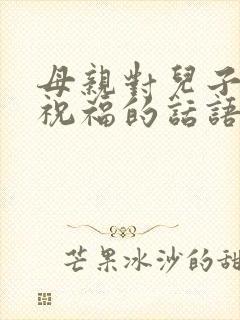 母親對兒子
祝福的話語
芒果冰沙的甜